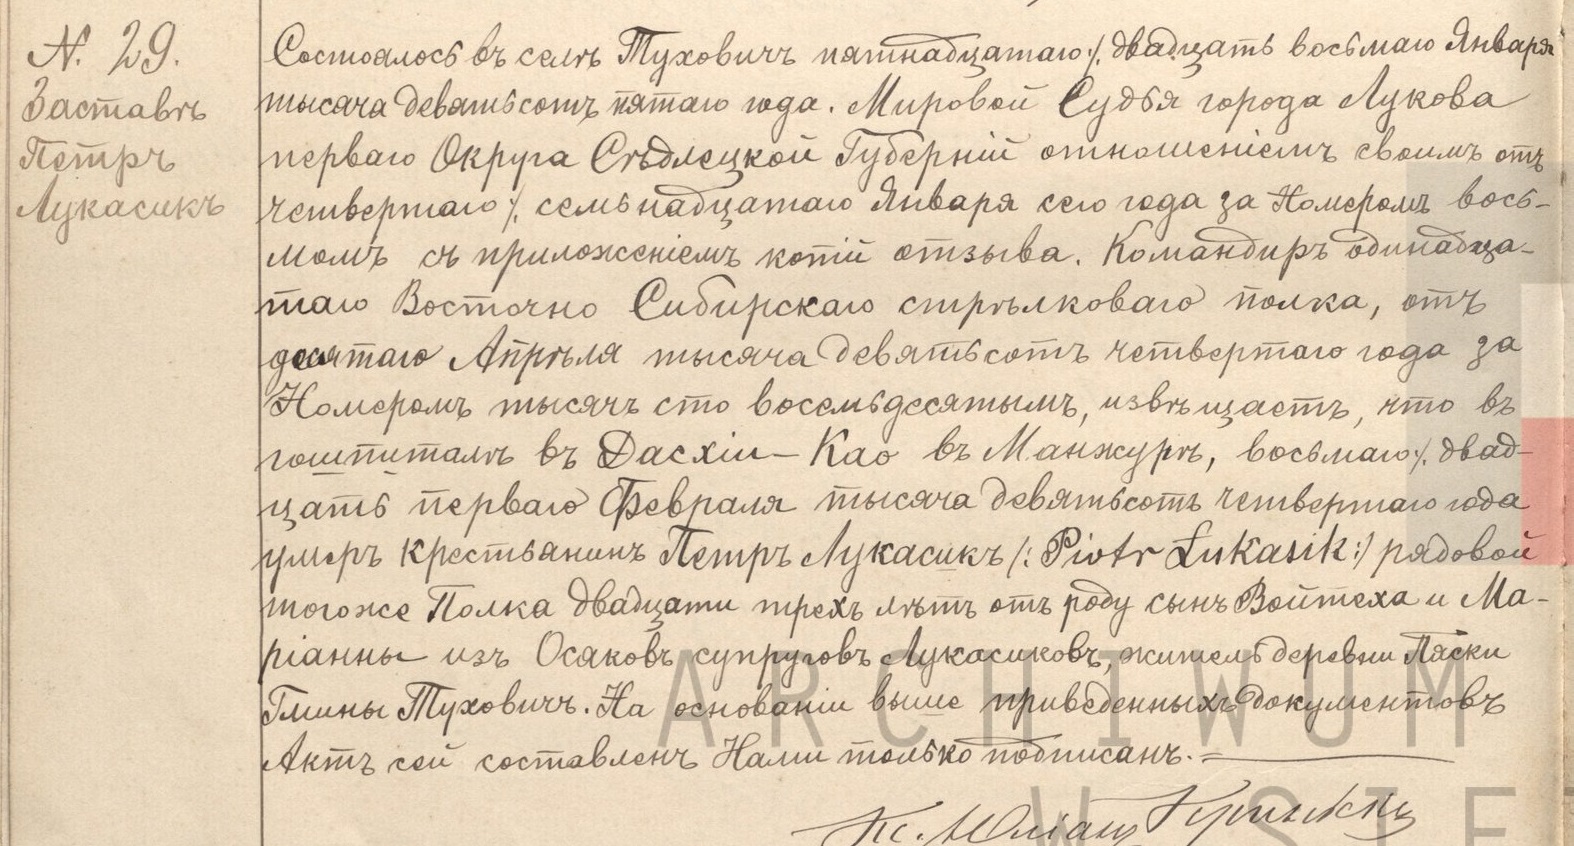 N. 29.
Заставѣ
Петръ
Лукасикъ
Состоялось въ селѣ Туховичъ пятнадцатаго /. двадцать восьмаго Января
тысяча девятьсотъ пятаго года. Мировой Судья города Лукова
перваго Округа Сѣдлецкой Губерніи отношеніемъ своимъ отъ
четвертаго /. семьнадцатаго Января сего года за Номеромъ вось-
момъ съ приложеніемъ копіи отзыва. Командиръ одинадца-
таго Восточно Сибирскаго стрѣлковаго полка, отъ
десятаго Апрѣля тысяча девятьсотъ четвертаго года за
Номеромъ тысячъ сто восемьдесятымъ, извѣщаетъ, что въ
гошпиталѣ въ Дасхіи - Као въ Манжурѣ, восьмаго /. двад-
цать перваго Февраля тысяча девятьсотъ четвертаго года
умеръ крестьянинъ Петръ Лукасикъ /: Piotr Łukasik :/ рядовой
тогоже Полка двадцати трехъ лѣтъ отъ роду сынъ Войтеха и Ма-
ріанны изъ Осяковъ супруговъ Лукасиковъ, житель деревни Пяски
Гмины Туховичъ. На основаніи выше приведенныхъ документовъ
Актъ сей составленъ Нами только подписанъ. =
Кс. Юліанъ
ARCHIWUM
W SIE